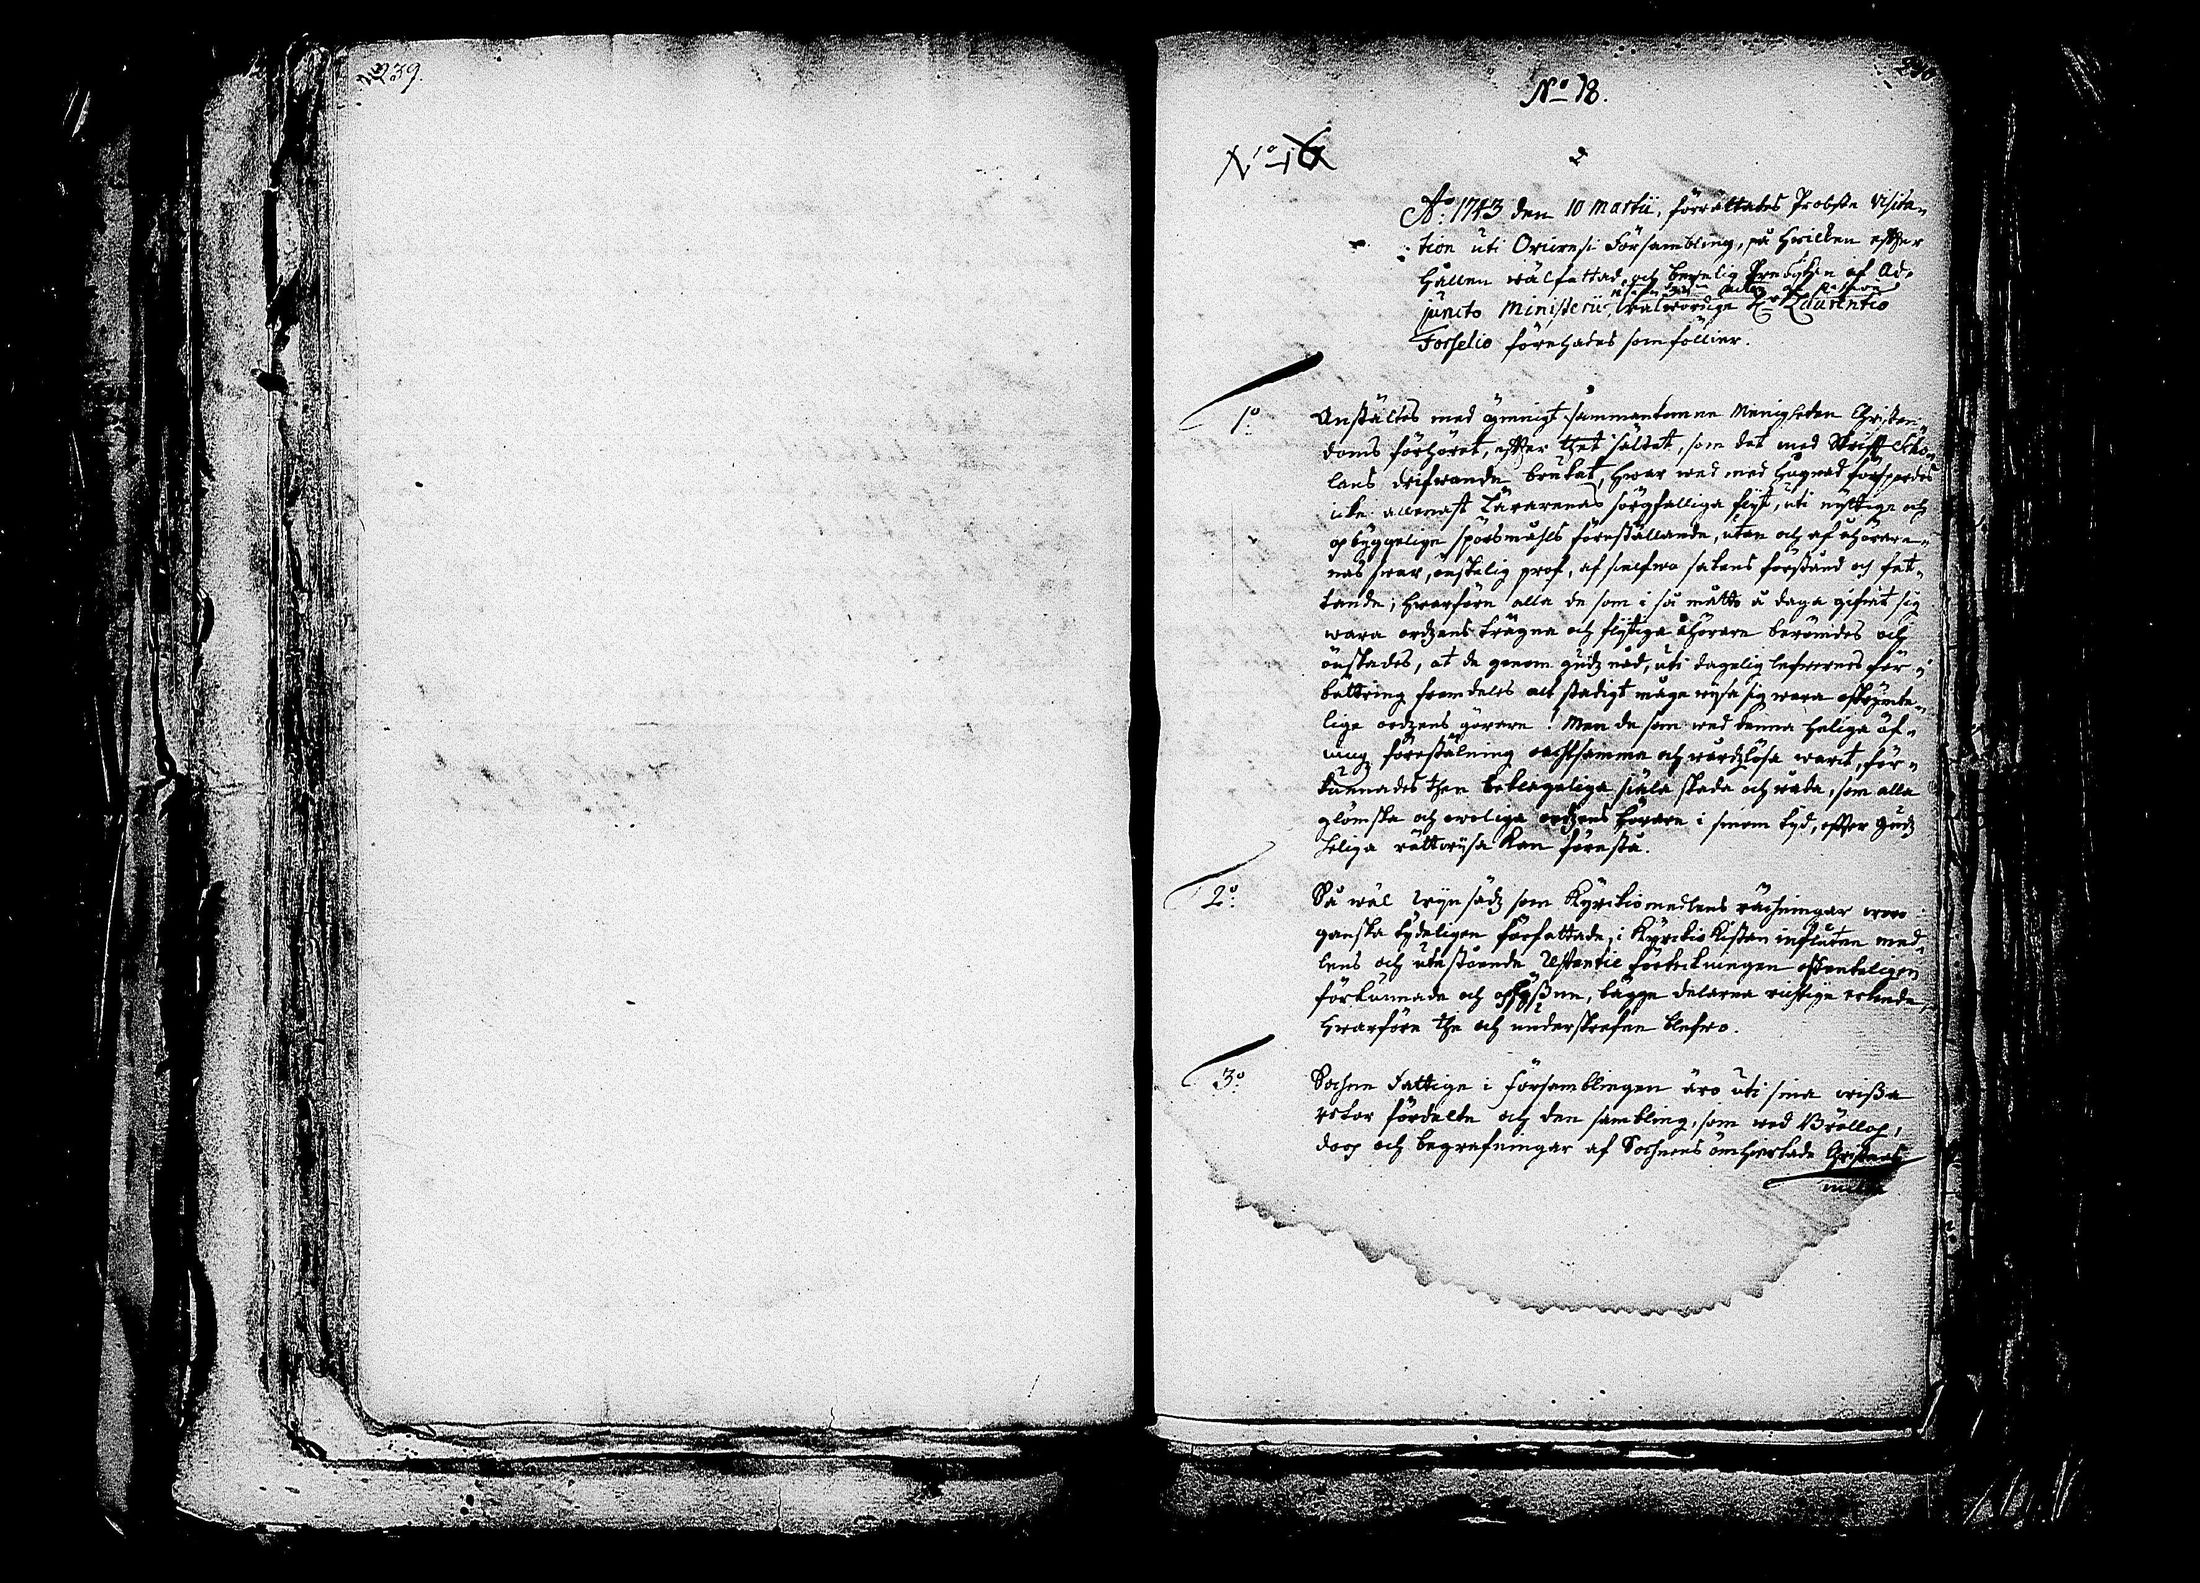 239.
No 18.
No 16
Ao 1743 den 10 Martii, förrättades Probste Visita-
tion uti Orivesi Försambling, på hwilken efter
hållen wälfattad och bewelig Predikan af Ad-
juncto Ministerii, wälwördige Hr Laurentio
Forselio förehades som föllier.
1o Anstältes med ymnigt sammankomne Menigheten Christen-
doms förhöret, efter thet sättet, som det med Skrift Scho-
lans drifwande brukat, hwar wed med hugnad förspordes
icke allenast Lärarenas sorgfälliga flijt, uti nyttige och
opbyggelige spörsmåhls föreställande, utan och af åhörare-
nas swar, önskelig prof, af sielfwa sakens förstånd och fat-
tande; hwarföre alla de som i så måtto å daga gifwit sig
wara ordzens trägna och flijtiga åhörare berömdes och
önskades, at de genom Gudz nåd, uti dagelig lefwernes för-
bättring framdeles alt stadigt måga wijsa sig wara oskrymte-
lige ordzens görare! Men de som wed denna heliga öf-
ning förestälning oachtsamma och wårdzlösa warit, för-
kunnades then beklageliga siäla skada och wåda, som alla
glömska och owoliga ordzens hörare i sinom tijd, efter Gudz
heliga rättwijsa kan förestå.
2o Så wäl Wijnsädz som Kyrckiomedlens räkningar woro
ganska tydeligen författade, i Kyrckio Kistan influtne med-
lens och utestående Restantie förtekningen offenteligen
förkunnade och oplyste, bägge delarna richtige erkende,
hwarföre the och underskrefne blefwo.
3o Sochne Fattige i Församblingen äro uti sina wissa
rotar fördelte och den sambling, som wed Bröllop,
doop och begrafningar af Sochnens ömhiertade Christnas